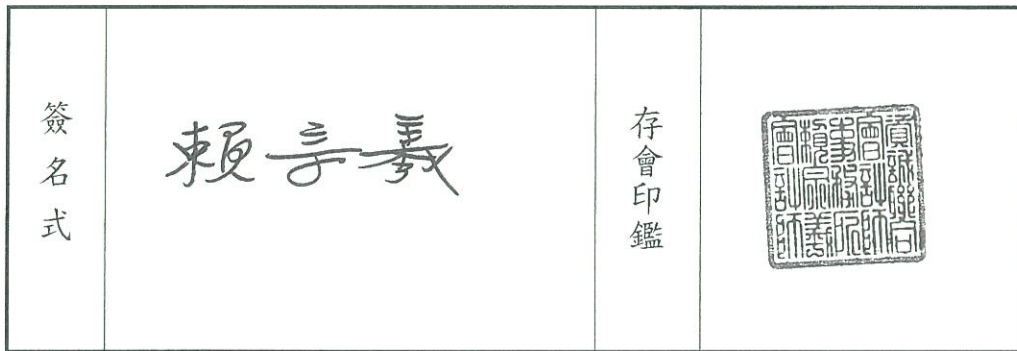 簽名式
賴宗羲
存會印鑑
資誠聯合
會計師
事務所
賴宗羲
會計師